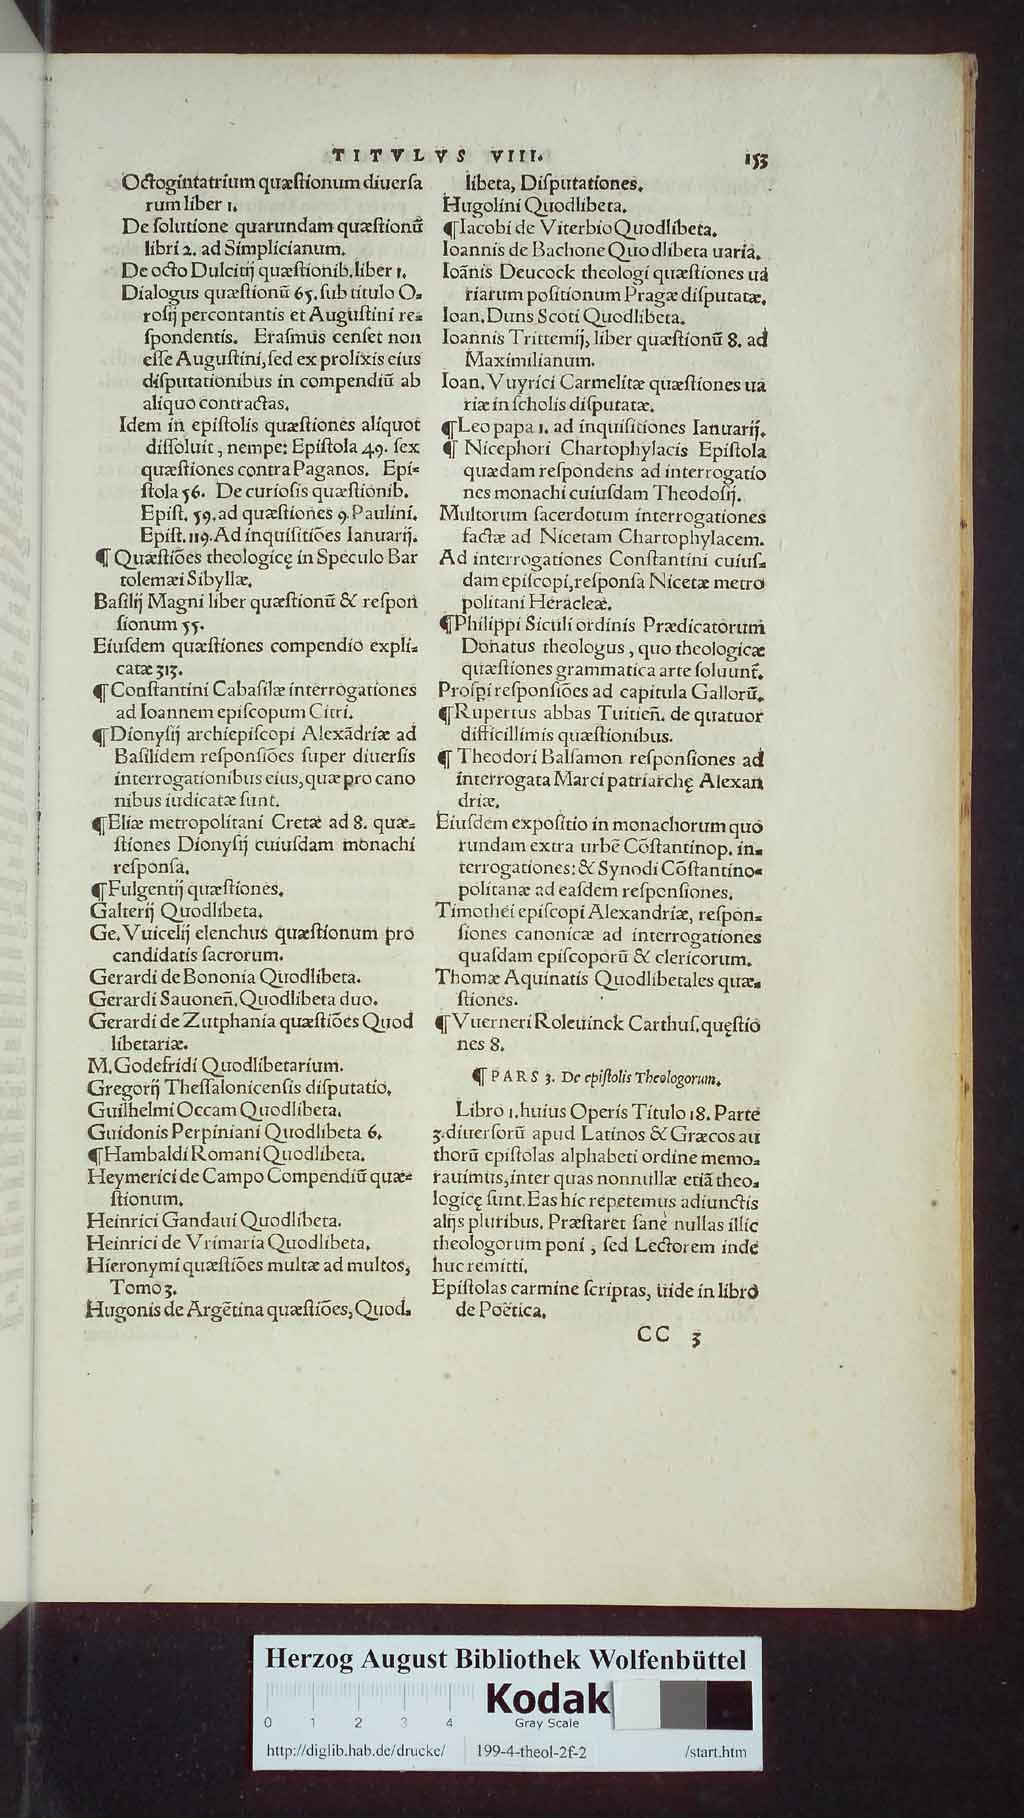 TITVLVS VIII. 153
Octogintatrium quæſtionum diuerſa
rum liber 1.
De ſolutione quarundam quæſtionū
libri 2. ad Simplicianum.
De octo Dulcitij quæſtionib. liber 1.
Dialogus quæſtionū 65. ſub titulo O-
roſij percontantis et Auguſtini re-
ſpondentis. Eraſmus cenſet non
eſſe Auguſtini, ſed ex prolixis eius
diſputationibus in compendiū ab
aliquo contractas.
Idem in epiſtolis quæſtiones aliquot
diſſoluit, nempe: Epiſtola 49. ſex
quæſtiones contra Paganos. Epi-
ſtola 56. De curioſis quæſtionib.
Epiſt. 59. ad quæſtiones 9. Paulini.
Epiſt. 119. Ad inquiſitiōes Ianuarij.
¶ Quæſtiōes theologicę in Speculo Bar
tolemæi Sibyllæ.
Baſilij Magni liber quæſtionū & reſpon
ſionum 55.
Eiuſdem quæſtiones compendio expli-
catæ 313.
¶ Conſtantini Cabaſilæ interrogationes
ad Ioannem epiſcopum Citri.
¶ Dionyſij archiepiſcopi Alexādriæ ad
Baſilidem reſponſiōes ſuper diuerſis
interrogationibus eius, quæ pro cano
nibus iudicatæ ſunt.
¶ Eliæ metropolitani Cretæ ad 8. quæ-
ſtiones Dionyſij cuiuſdam monachi
reſponſa.
¶ Fulgentij quæſtiones.
Galterij Quodlibeta.
Ge. Vuicelij elenchus quæſtionum pro
candidatis ſacrorum.
Gerardi de Bononia Quodlibeta.
Gerardi Sauoneñ. Quodlibeta duo.
Gerardi de Zutphania quæſtiōes Quod
libetariæ.
M. Godefridi Quodlibetarium.
Gregorij Theſſalonicenſis diſputatio.
Guilhelmi Occam Quodlibeta.
Guidonis Perpiniani Quodlibeta 6.
¶ Hambaldi Romani Quodlibeta.
Heymerici de Campo Compendiū quæ-
ſtionum.
Heinrici Gandaui Quodlibeta.
Heinrici de Vrimaria Quodlibeta.
Hieronymi quæſtiōes multæ ad multos,
Tomo 3.
Hugonis de Argētina quæſtiōes, Quod-
libeta, Diſputationes.
Hugolini Quodlibeta.
¶ Iacobi de Viterbio Quodlibeta.
Ioannis de Bachone Quodlibeta uaria.
Ioānis Deucock theologi quæſtiones ua
riarum poſitionum Pragæ diſputatæ.
Ioan. Duns Scoti Quodlibeta.
Ioannis Trittemij, liber quæſtionū 8. ad
Maximilianum.
Ioan. Vuyrici Carmelitæ quæſtiones ua
riæ in ſcholis diſputatæ.
¶ Leo papa 1. ad inquiſitiones Ianuarij.
¶ Nicephori Chartophylacis Epiſtola
quædam reſpondens ad interrogatio
nes monachi cuiuſdam Theodoſij.
Multorum ſacerdotum interrogationes
factæ ad Nicetam Chartophylacem.
Ad interrogationes Conſtantini cuiuſ-
dam epiſcopi, reſponſa Nicetæ metro
politani Heracleæ.
¶ Philippi Siculi ordinis Prædicatorum
Donatus theologus, quo theologicæ
quæſtiones grammatica arte ſoluunt̄.
Proſpi reſponſiōes ad capitula Gallorū.
¶ Rupertus abbas Tuitieñ. de quatuor
difficillimis quæſtionibus.
¶ Theodori Balſamon reſponſiones ad
interrogata Marci patriarchę Alexan
driæ.
Eiuſdem expoſitio in monachorum quo
rundam extra urbē Cōſtantinop. in-
terrogationes: & Synodi Cōſtantino-
politanæ ad eaſdem reſponſiones.
Timothei epiſcopi Alexandriæ, reſpon-
ſiones canonicæ ad interrogationes
quaſdam epiſcoporū & clericorum.
Thomæ Aquinatis Quodlibetales quæ-
ſtiones.
¶ Vuerneri Roleuinck Carthuſ. quęſtio
nes 8.
¶ PARS 3. De epiſtolis Theologorum.
Libro 1. huius Operis Titulo 18. Parte
3. diuerſorū apud Latinos & Græcos au
thorū epiſtolas alphabeti ordine memo-
rauimus, inter quas nonnullæ etiā theo-
logicę ſunt. Eas hic repetemus adiunctis
alijs pluribus. Præſtaret ſanè nullas illic
theologorum poni, ſed Lectorem inde
huc remitti.
Epiſtolas carmine ſcriptas, uide in libro
de Poëtica.
CC 3
Herzog August Bibliothek Wolfenbüttel
Kodak
0 1 2 3 4 Gray Scale
http://diglib.hab.de/drucke/ 199-4-theol-2f-2 /start.htm